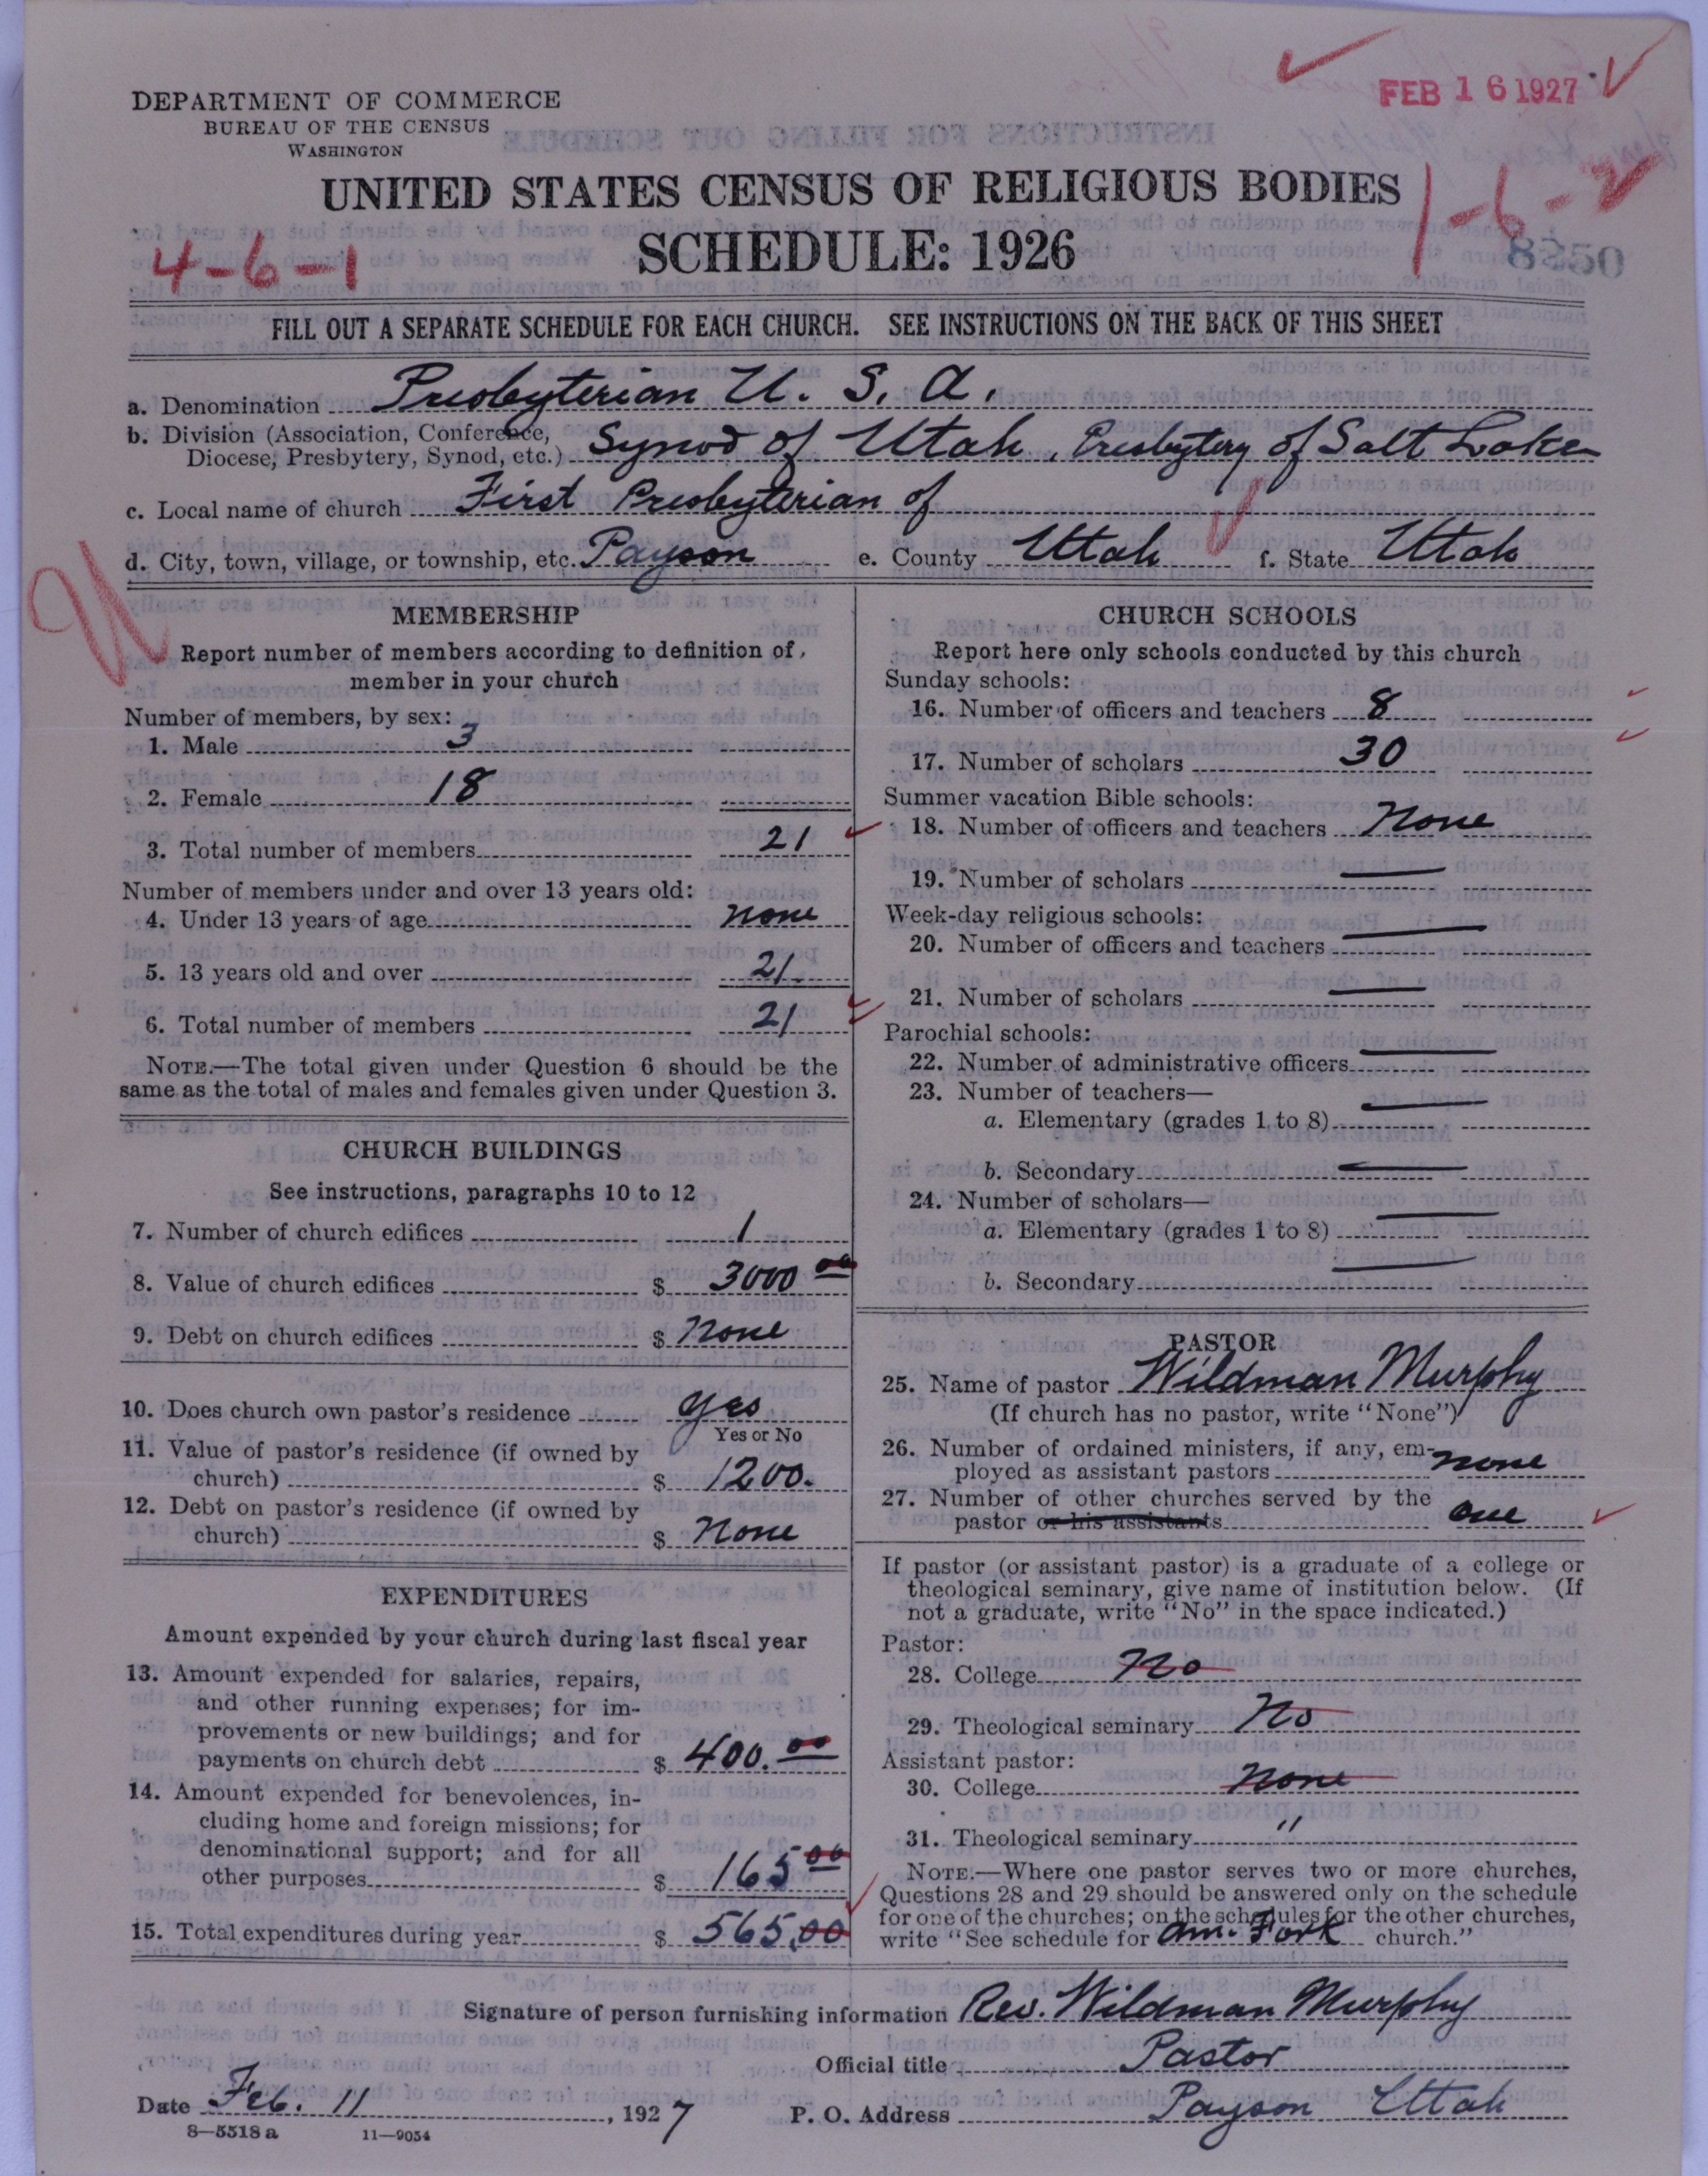 FEB 16 1927
DEPARTMENT OF COMMERCE
BUREAU OF THE CENSUS
WASHINGTON
UNITED STATES CENSUS OF RELIGIOUS BODIES
1-6-2
4-6-1
SCHEDULE: 1926
8250
FILL OUT A SEPARATE SCHEDULE FOR EACH CHURCH. SEE INSTRUCTIONS ON THE BACK OF THIS SHEET
a. Denomination Presbyterian U. S. A.
b. Division (Association, Conference, Diocese, Presbytery, Synod, etc.) Synod of Utah, Presbytery of Salt Lake
c. Local name of church First Presbyterian of
d. City, town, village, or township, etc. Payson e. County Utah f. State Utah
MEMBERSHIP
Report number of members according to definition of
member in your church
Number of members, by sex:
1. Male 3
2. Female 18
3. Total number of members 21
Number of members under and over 13 years old:
4. Under 13 years of age none
5. 13 years old and over 21
6. Total number of members 21
NOTE.—The total given under Question 6 should be the
same as the total of males and females given under Question 3.
CHURCH BUILDINGS
See instructions, paragraphs 10 to 12
7. Number of church edifices 1
8. Value of church edifices $ 3000 00
9. Debt on church edifices $ None
10. Does church own pastor's residence yes
Yes or No
11. Value of pastor's residence (if owned by
church) $ 1200.
12. Debt on pastor's residence (if owned by
church) $ None
EXPENDITURES
Amount expended by your church during last fiscal year
13. Amount expended for salaries, repairs,
and other running expenses; for im-
provements or new buildings; and for
payments on church debt $ 400.00
14. Amount expended for benevolences, in-
cluding home and foreign missions; for
denominational support; and for all
other purposes $ 165 00
15. Total expenditures during year $ 565.00
CHURCH SCHOOLS
Report here only schools conducted by this church
Sunday schools:
16. Number of officers and teachers 8
17. Number of scholars 30
Summer vacation Bible schools:
18. Number of officers and teachers None
19. Number of scholars —
Week-day religious schools:
20. Number of officers and teachers —
21. Number of scholars —
Parochial schools:
22. Number of administrative officers —
23. Number of teachers—
a. Elementary (grades 1 to 8) —
b. Secondary —
24. Number of scholars—
a. Elementary (grades 1 to 8) —
b. Secondary —
PASTOR
25. Name of pastor Wildman Murphy
(If church has no pastor, write "None")
26. Number of ordained ministers, if any, em-
ployed as assistant pastors none
27. Number of other churches served by the
pastor or his assistants one
If pastor (or assistant pastor) is a graduate of a college or
theological seminary, give name of institution below. (If
not a graduate, write "No" in the space indicated.)
Pastor:
28. College No
29. Theological seminary No
Assistant pastor:
30. College None
31. Theological seminary "
NOTE.—Where one pastor serves two or more churches,
Questions 28 and 29 should be answered only on the schedule
for one of the churches; on the schedules for the other churches,
write "See schedule for Am. Fork church."
Signature of person furnishing information Rev. Wildman Murphy
Official title Pastor
Date Feb. 11, 1927 P. O. Address Payson Utah
8—5518 a 11—9054